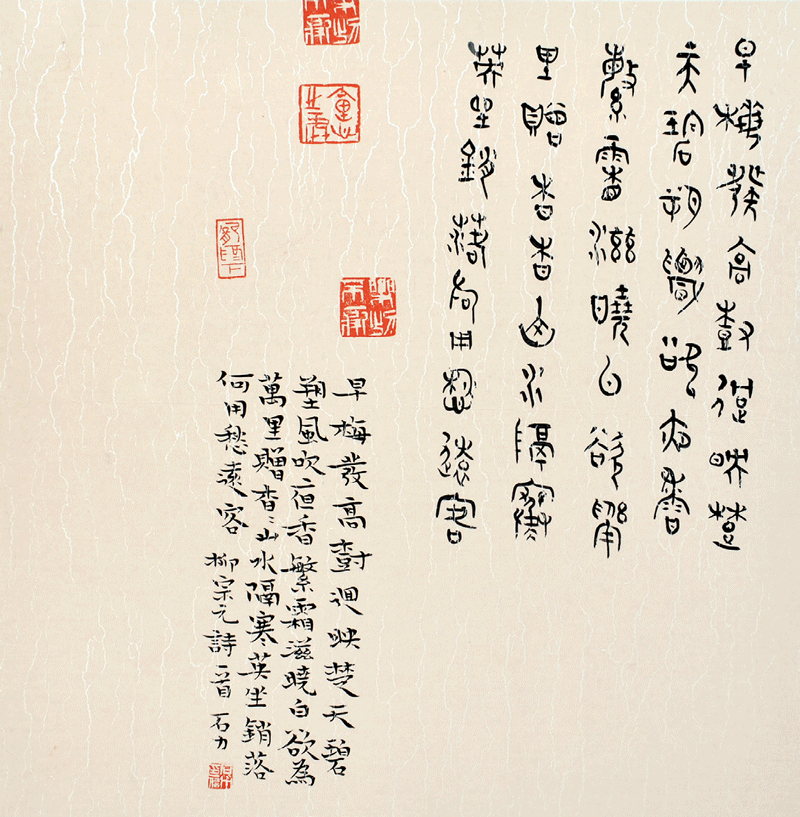 早梅發高樹迥映楚
天碧朔風吹夜香
繁霜滋曉白欲為
里贈杳杳山水隔寒
英坐銷落何用愁遠客
早梅發高樹迥映楚天碧
塑風吹夜香繁霜滋曉白欲為
萬里贈杳〻山水隔寒英坐銷落
何用愁遠客
柳宗元詩一首 石力